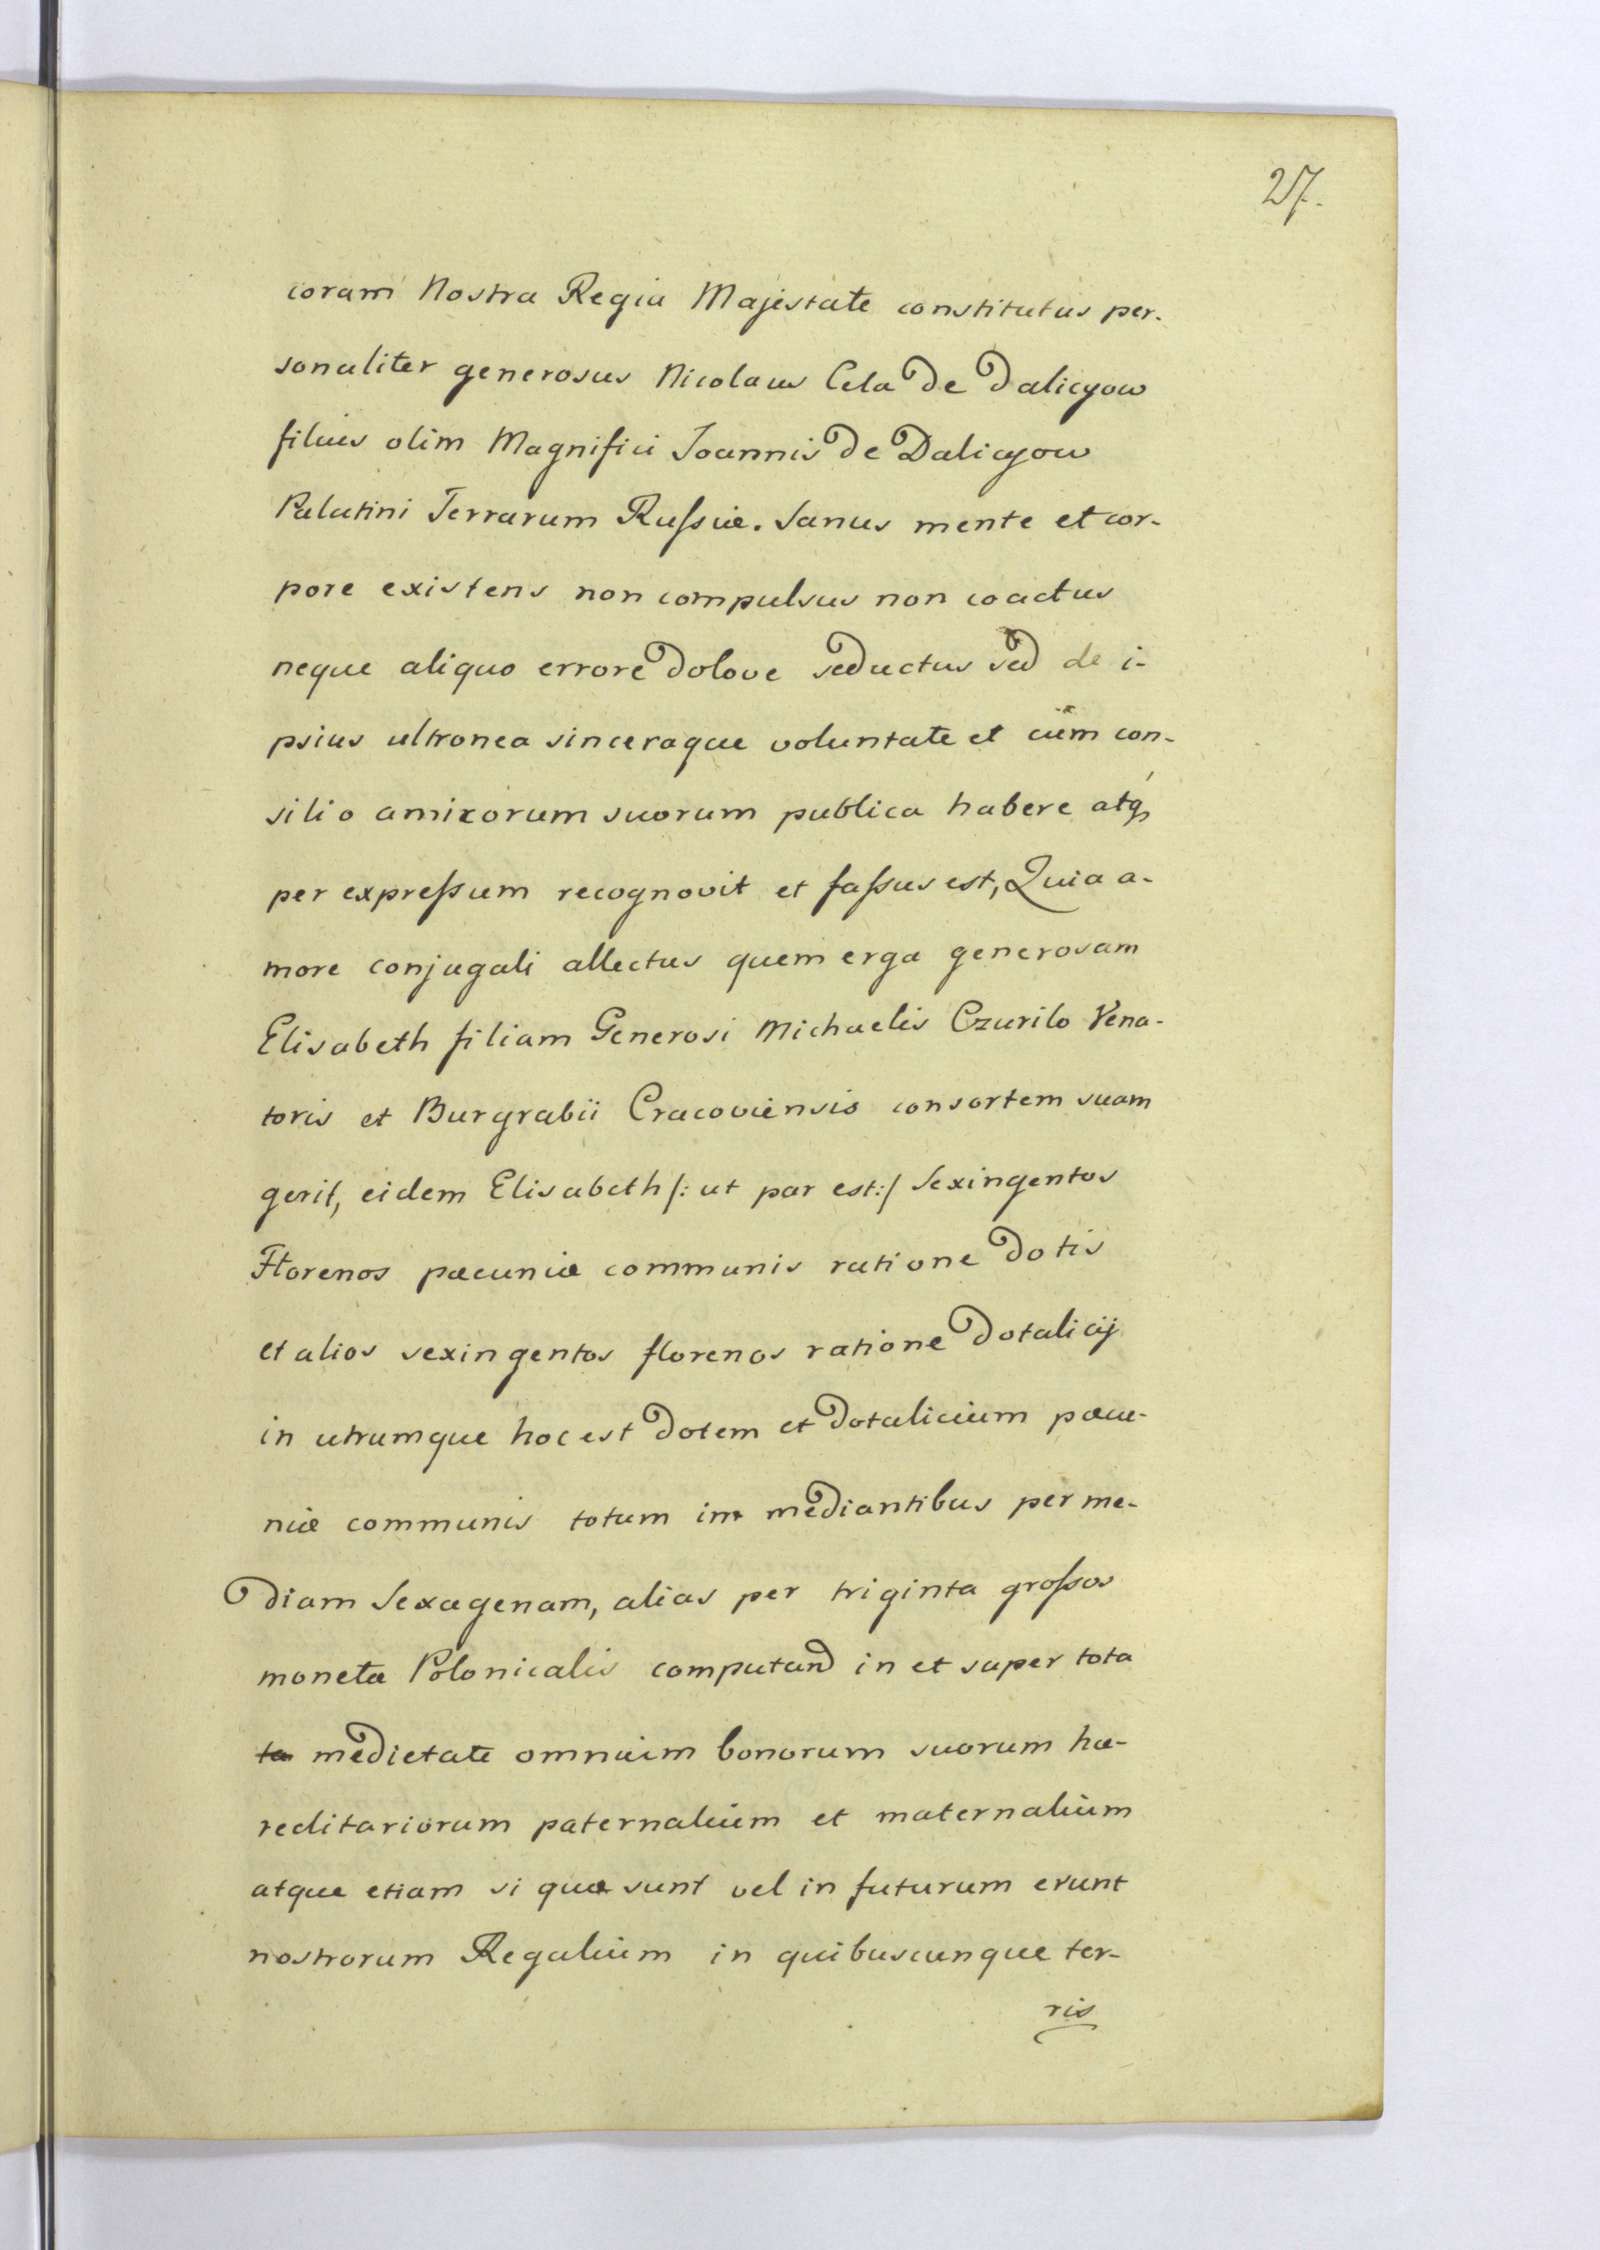 27.
coram Nostra Regia Majestate constitutus per-
sonaliter generosus Nicolaus Cela de Dalicyow
filius olim Magnifici Joannis de Dalicyow
Palatini Terrarum Russiæ. Sanus mente et cor-
pore existens non compulsus non coactus
neque aliquo errore dolove seductus sed de i-
psius ultronea sinceraque voluntate et cum con-
silio amicorum suorum publica habere atq́
per expressum recognovit et fassus est, Quia a-
more conjugali allectus quem erga generosam
Elisabeth filiam Generosi Michaelis Czurilo Vena-
toris et Burgrabii Cracoviensis consortem suam
gerit, eidem Elisabeth /: ut par est :/ Sexingentos
Florenos pæcuniæ communis ratione dotis
et alios sexingentos florenos ratione dotalicij
in utrumque hoc est dotem et dotalicium pæcu-
niæ communis totum in mediantibus per me-
diam Sexagenam, alias per triginta grossos
monetæ Polonicalis computand in et super tota
ta medietate omnium bonorum suorum hæ-
reditariorum paternalium et maternalium
atque etiam si quæ sunt vel in futurum erunt
nostrorum Regalium in quibuscunque ter-
ris